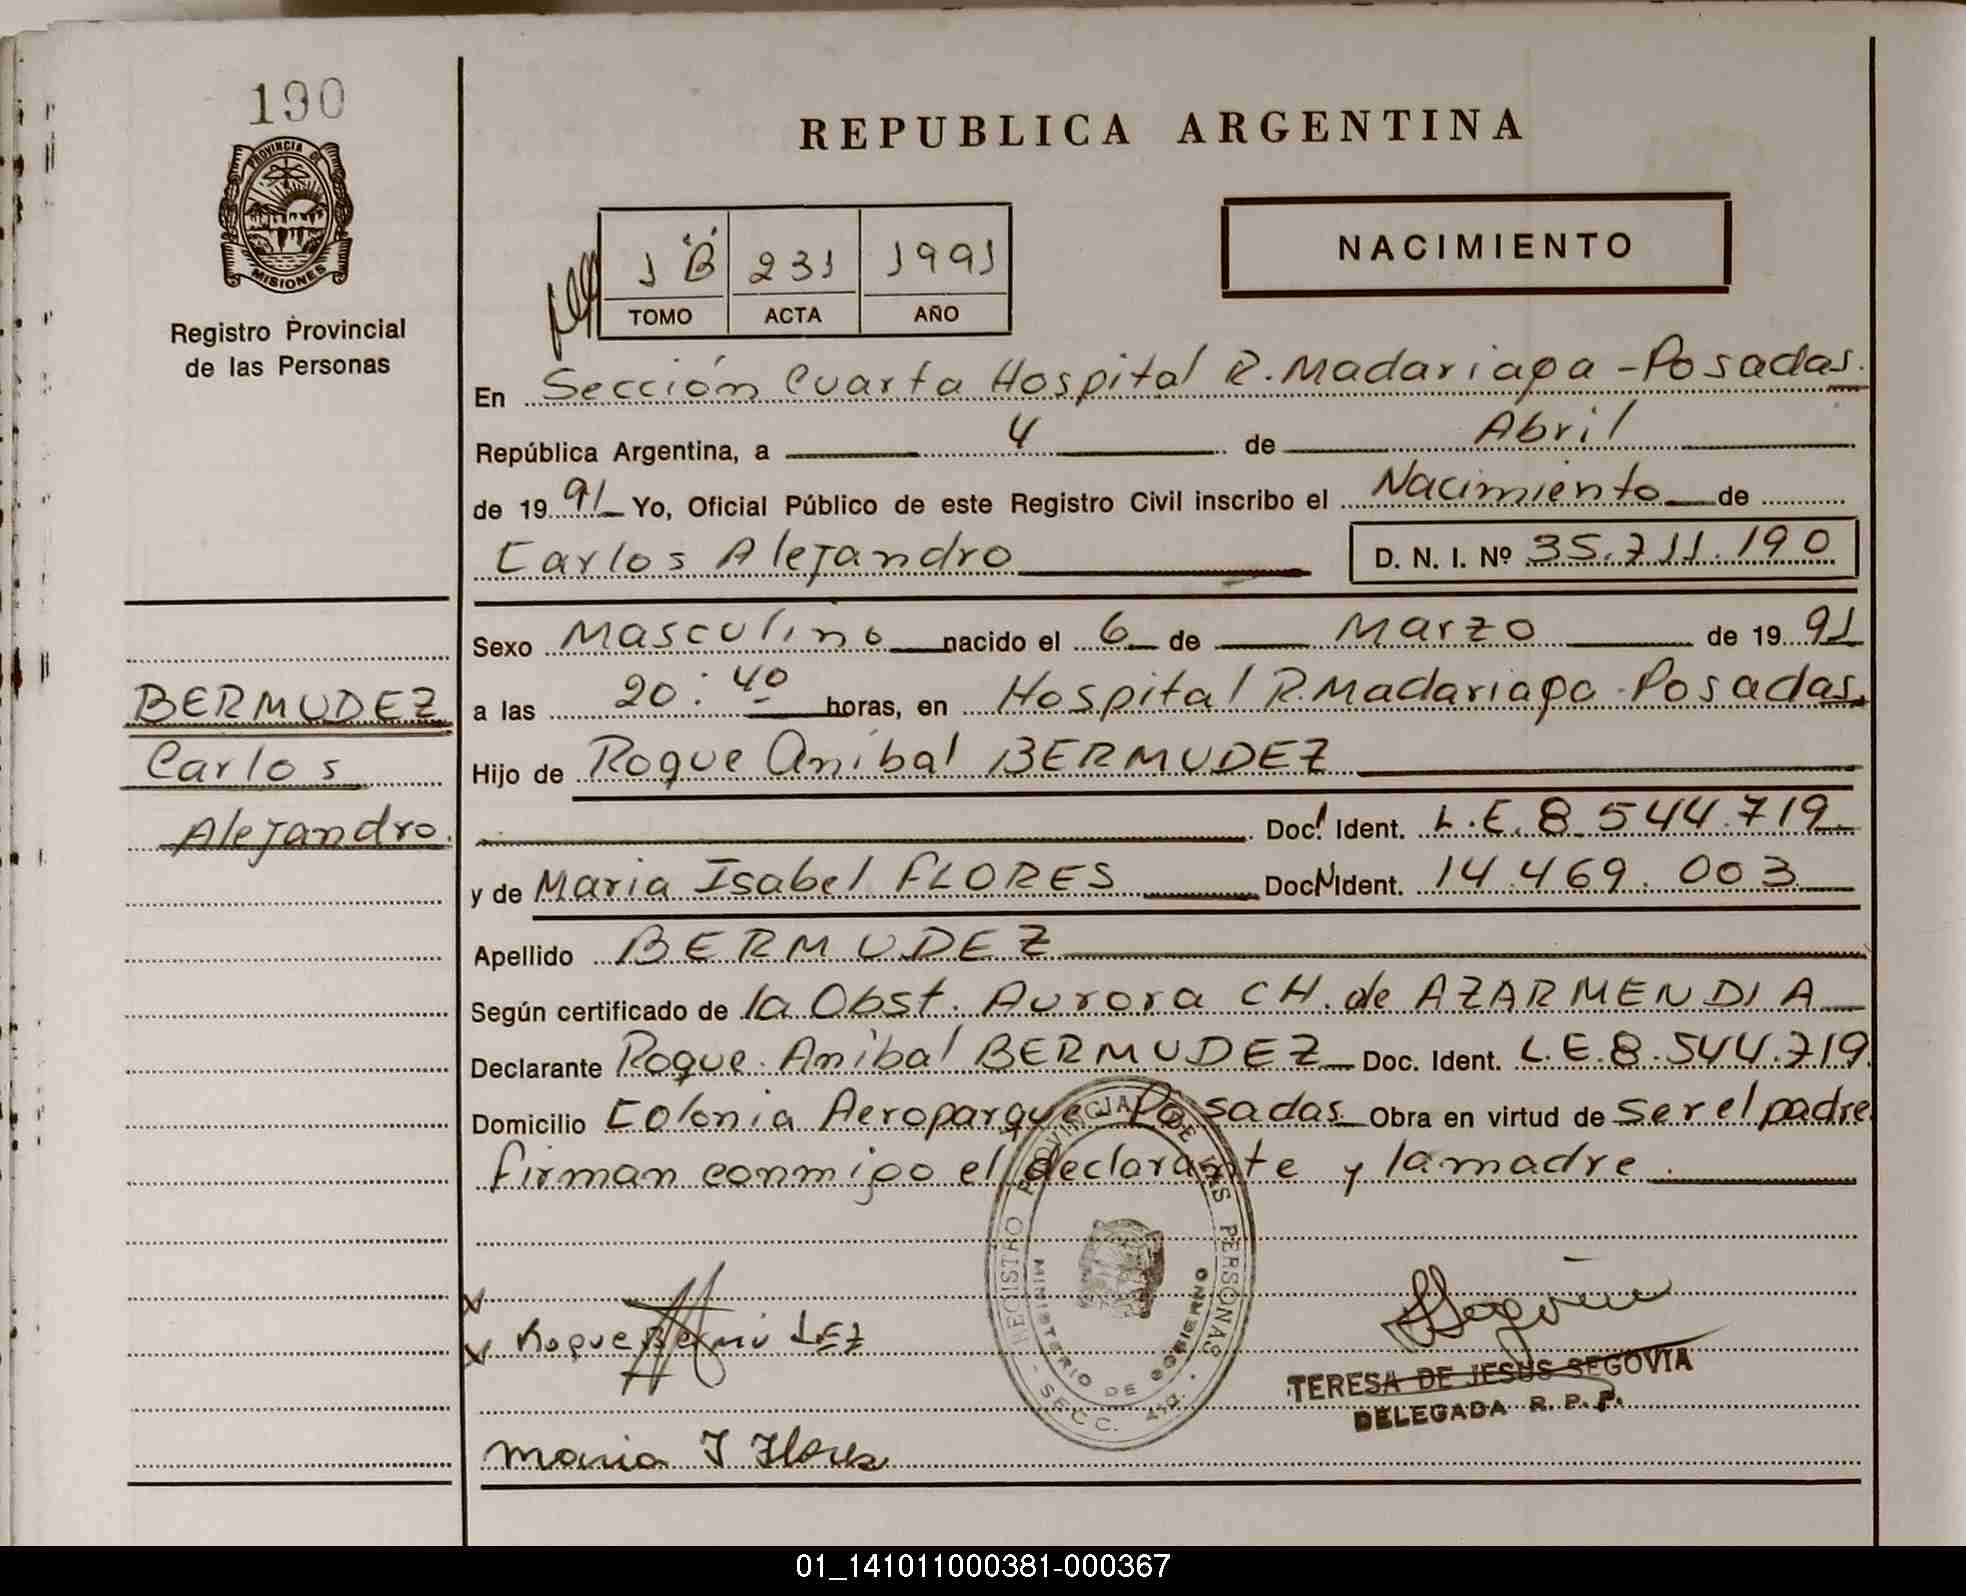 190
PROVINCIA DE
MISIONES
Registro Provincial
de las Personas
BERMUDEZ
Carlos
Alejandro.
REPUBLICA ARGENTINA
1 "B" 231 1991
TOMO ACTA AÑO
NACIMIENTO
En Sección Cuarta Hospital R. Madariaga - Posadas.
República Argentina, a 4 de Abril
de 1991 Yo, Oficial Público de este Registro Civil inscribo el Nacimiento de
Carlos Alejandro D. N. I. Nº 35.711.190
Sexo Masculino nacido el 6 de Marzo de 1991
a las 20:40 horas, en Hospital R. Madariaga - Posadas.
Hijo de Roque Anibal BERMUDEZ
Doc. Ident. L.E. 8.544.719.
y de Maria Isabel FLORES Doc. Ident. 14.469.003
Apellido BERMUDEZ
Según certificado de la Obst. Aurora CH. de AZARMENDIA
Declarante Roque Anibal BERMUDEZ Doc. Ident. L.E. 8.544.719
Domicilio Colonia Aeroparque Posadas Obra en virtud de ser el padre
firman conmigo el declarante y la madre.
REGISTRO PROVINCIAL DE LAS PERSONAS
MINISTERIO DE GOBIERNO
SECC. 4ta.
Roque Bermudez
Segovia
TERESA DE JESUS SEGOVIA
DELEGADA R. P. P.
Maria I Flores
01_141011000381-000367